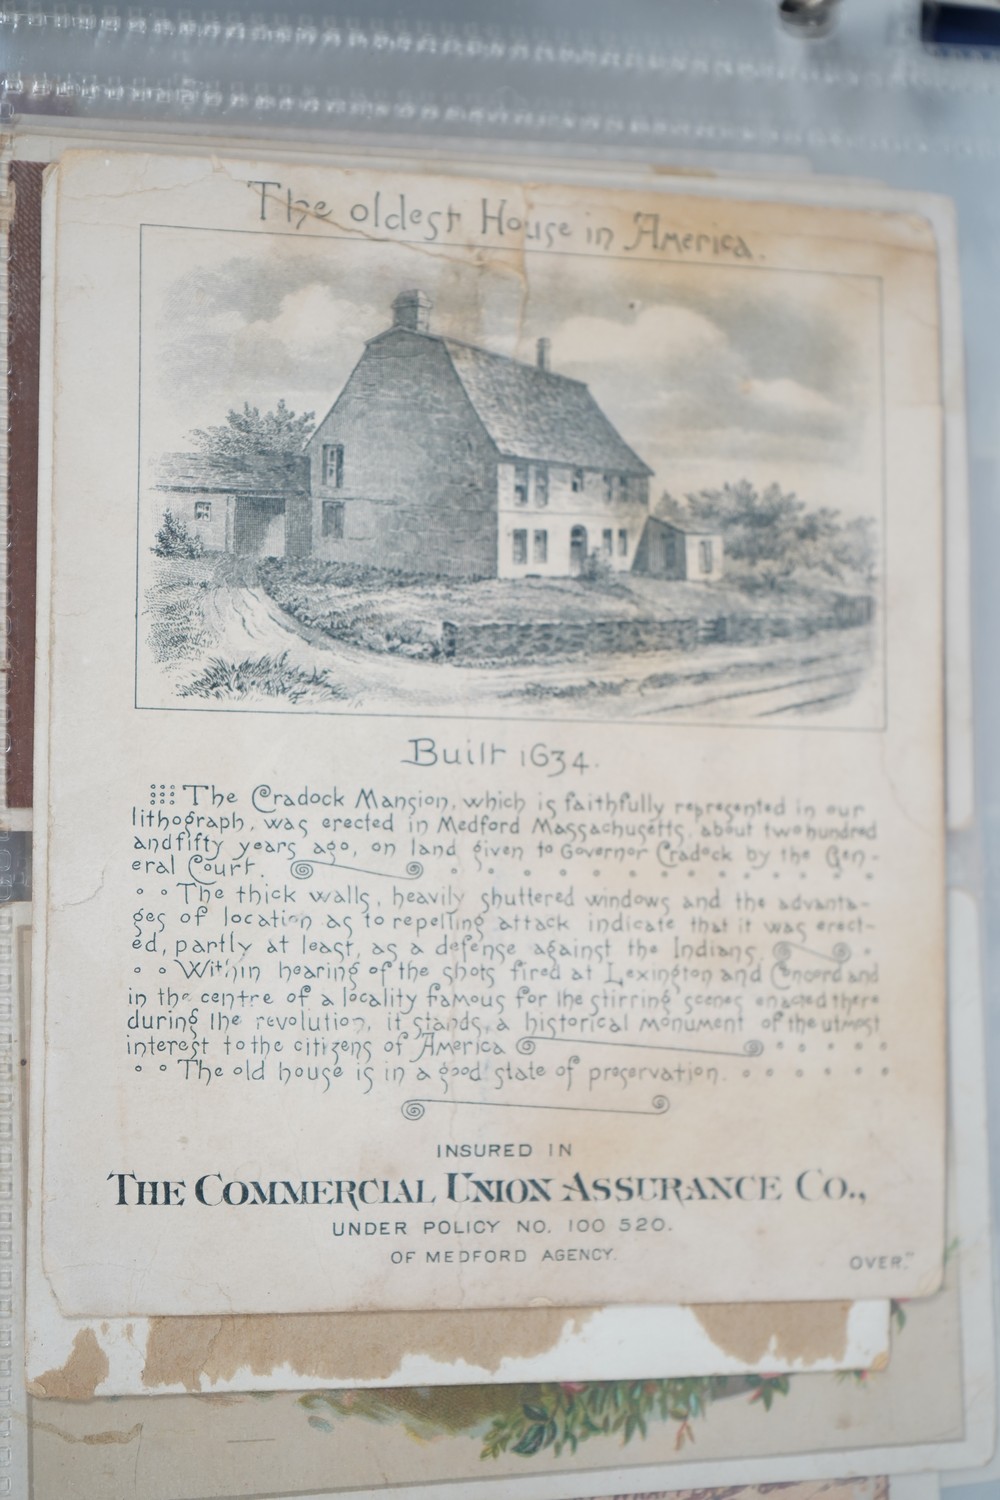 The oldest House in America.
Built 1634.
The Cradock Mansion, which is faithfully represented in our
lithograph, was erected in Medford Massachusetts, about two hundred
and fifty years ago, on land given to Governor Cradock by the Gen-
eral Court.
The thick walls, heavily shuttered windows and the advanta-
ges of location as to repelling attack indicate that it was erect-
ed, partly at least, as a defense against the Indians.
Within hearing of the shots fired at Lexington and Concord and
in the centre of a locality famous for the stirring scenes enacted there
during the revolution, it stands, a historical monument of the utmost
interest to the citizens of America
The old house is in a good state of preservation.
INSURED IN
THE COMMERCIAL UNION ASSURANCE CO.,
UNDER POLICY NO. 100 520.
OF MEDFORD AGENCY.
OVER."